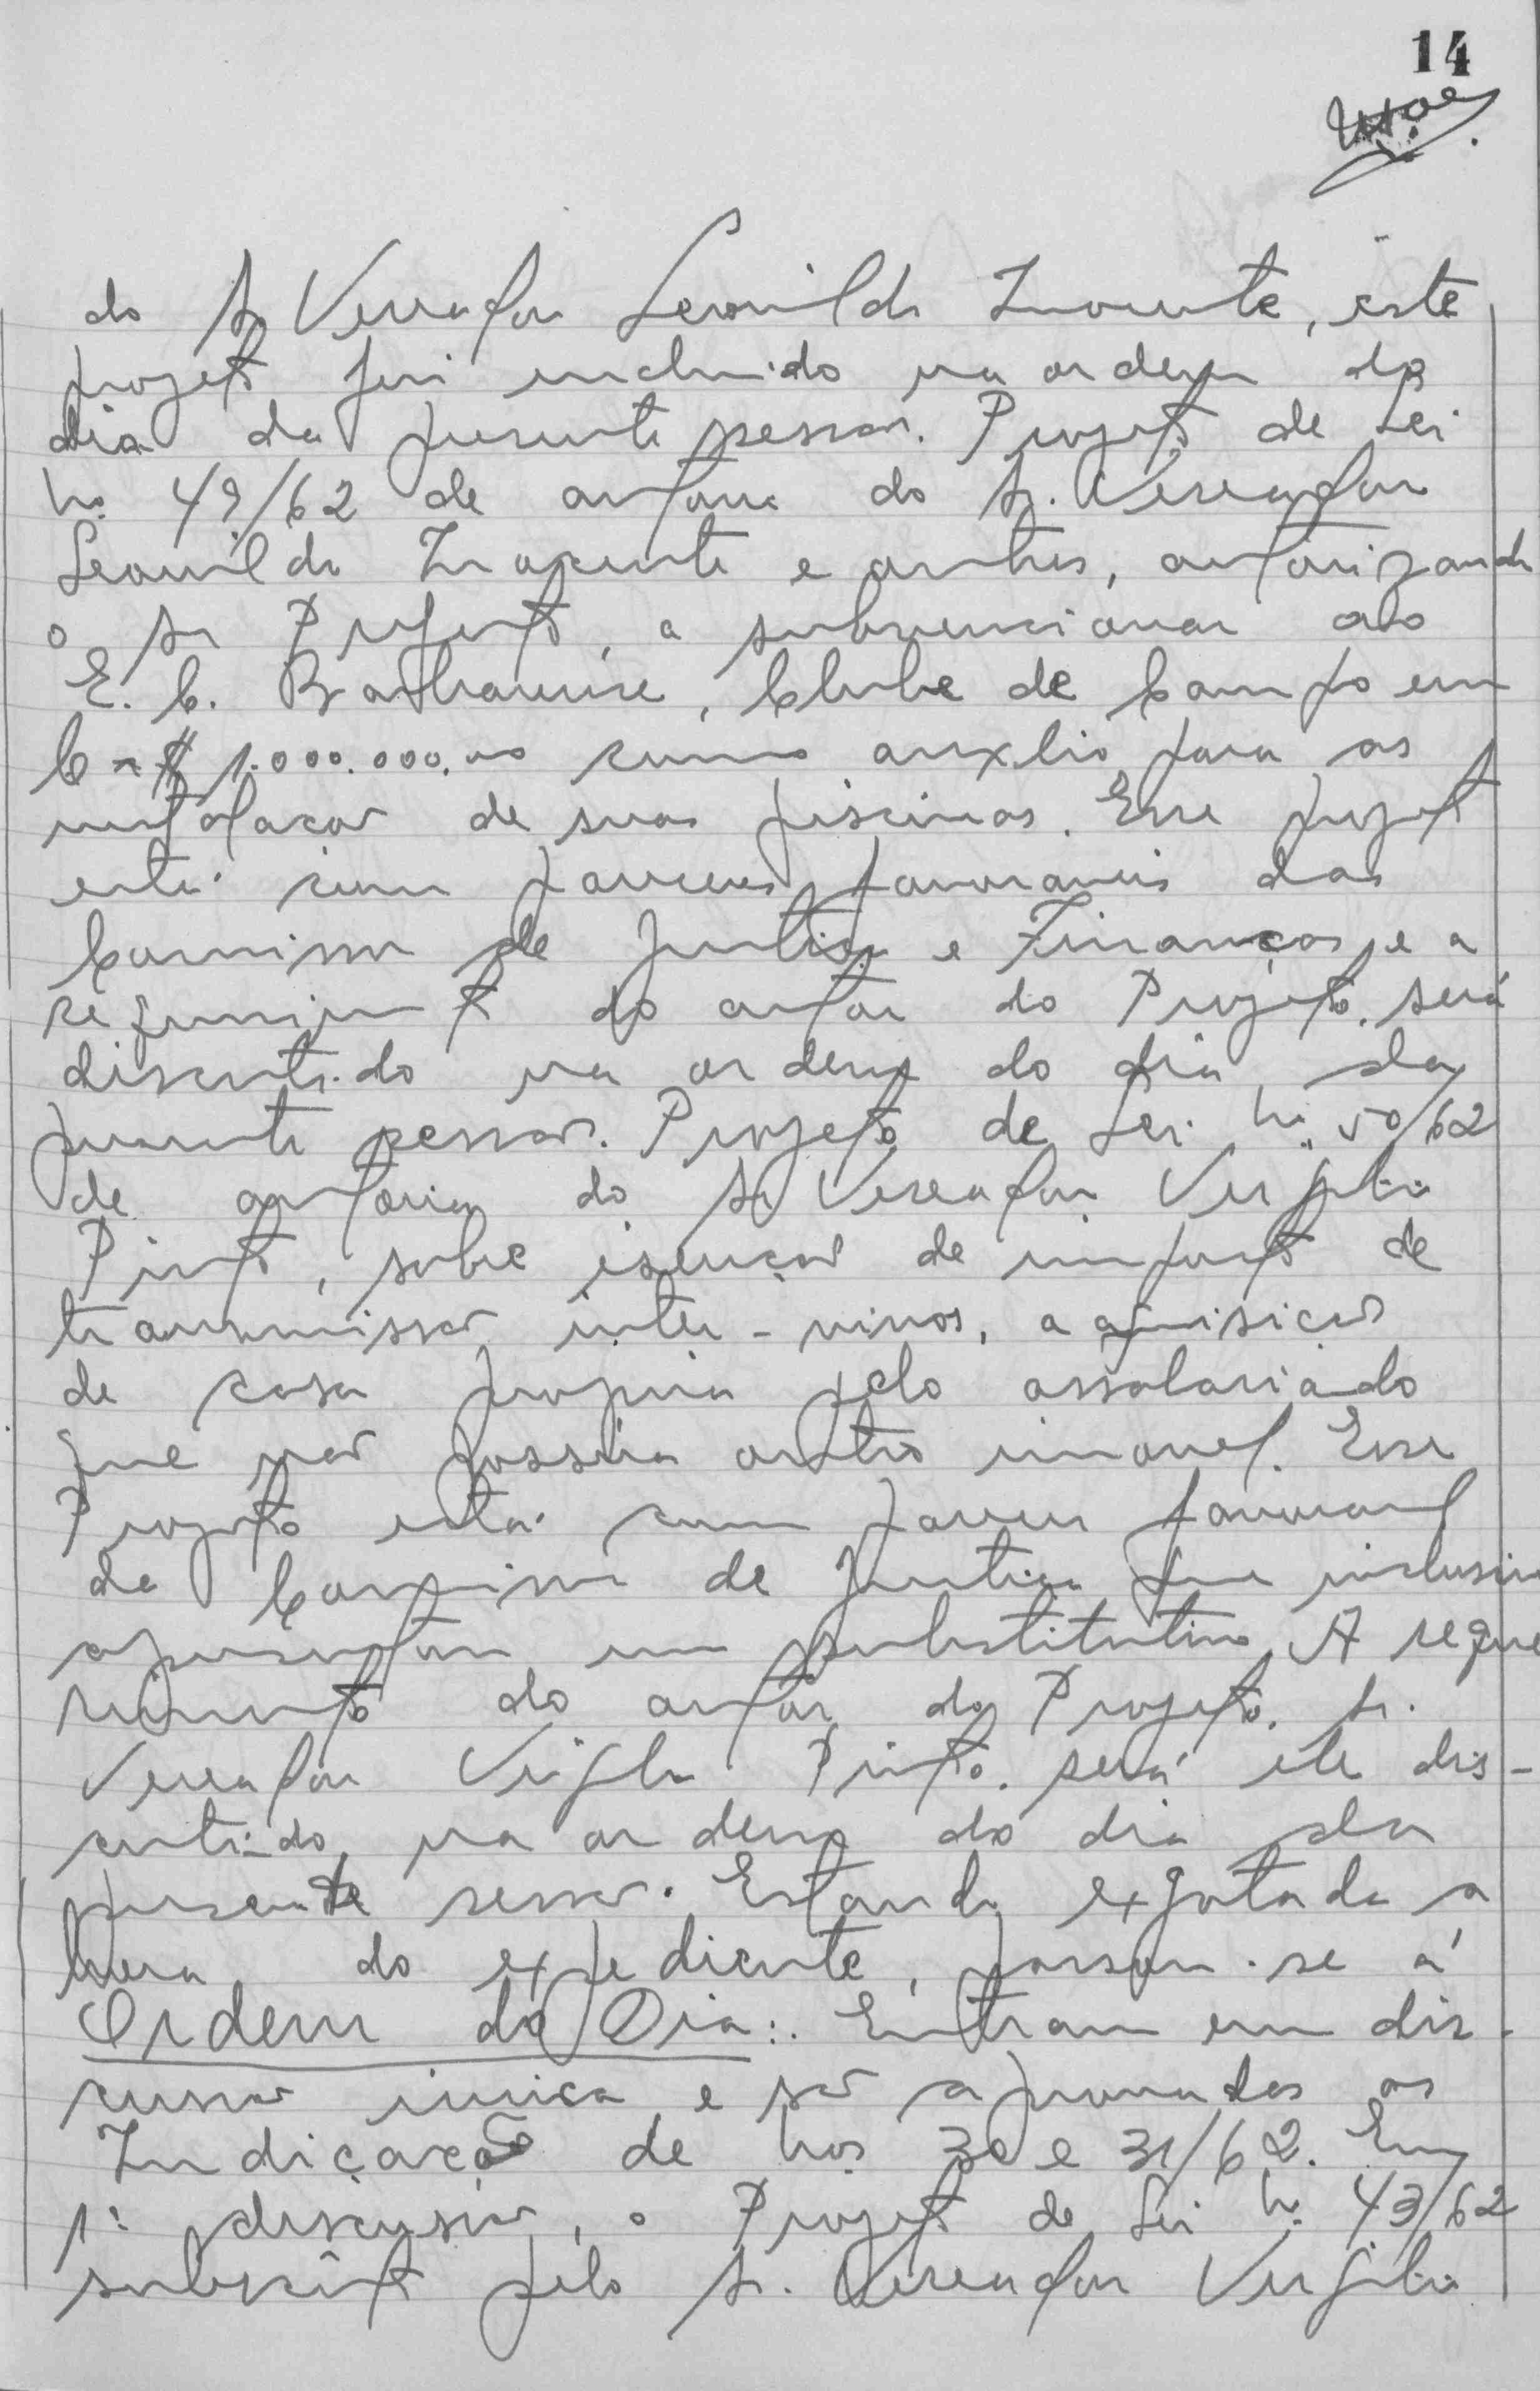 14
do Sr Vereador Leonildo Inocente, este
projeto foi incluido na ordem do
dia da presente sessão. Projeto de Lei
no 49/62 de autoria do Sr. Vereador
Leonildo Inocente e outros, autorizando
o Sr Prefeito, a subvencionar ao
E. C. Barbarense, Clube de Campo em
Cr$ 1.000.000,00 como auxlio para as
instalacão de suas piscinas. Esse projeto
está com pareceres favoraveis das
Comissão de Justiça e Finanças, e a
requerimento do autor do Projeto, será
discutido na ordem do dia, da
presente sessão. Projeto de Lei no 50/62
de autoria do Sr Vereador Virgilio
Pinto, sobre isenção de imposto de
transmissão inter-vivos, a aquisição
de casa propria pelo assalariado
que não possua outro imovel. Esse
Projeto está com parecer favoravel
da Comissão de Justiça que inclusive
apresentou um substitutivo. A reque
rimento do autor do Projeto, Sr.
Vereador Virgilio Pinto, será ele dis-
cutido, na ordem do dia da
presente sessão. Estando exgotada a
hora do expediente, passou-se á
Ordem do Dia:. Entram em dis-
cussão unica e são aprovadas as
Indicação de nos 30 e 31/62. Em
1ª discussão, o Projeto de Lei no 43/62
subscrito pelo Sr. Vereador Virgilio